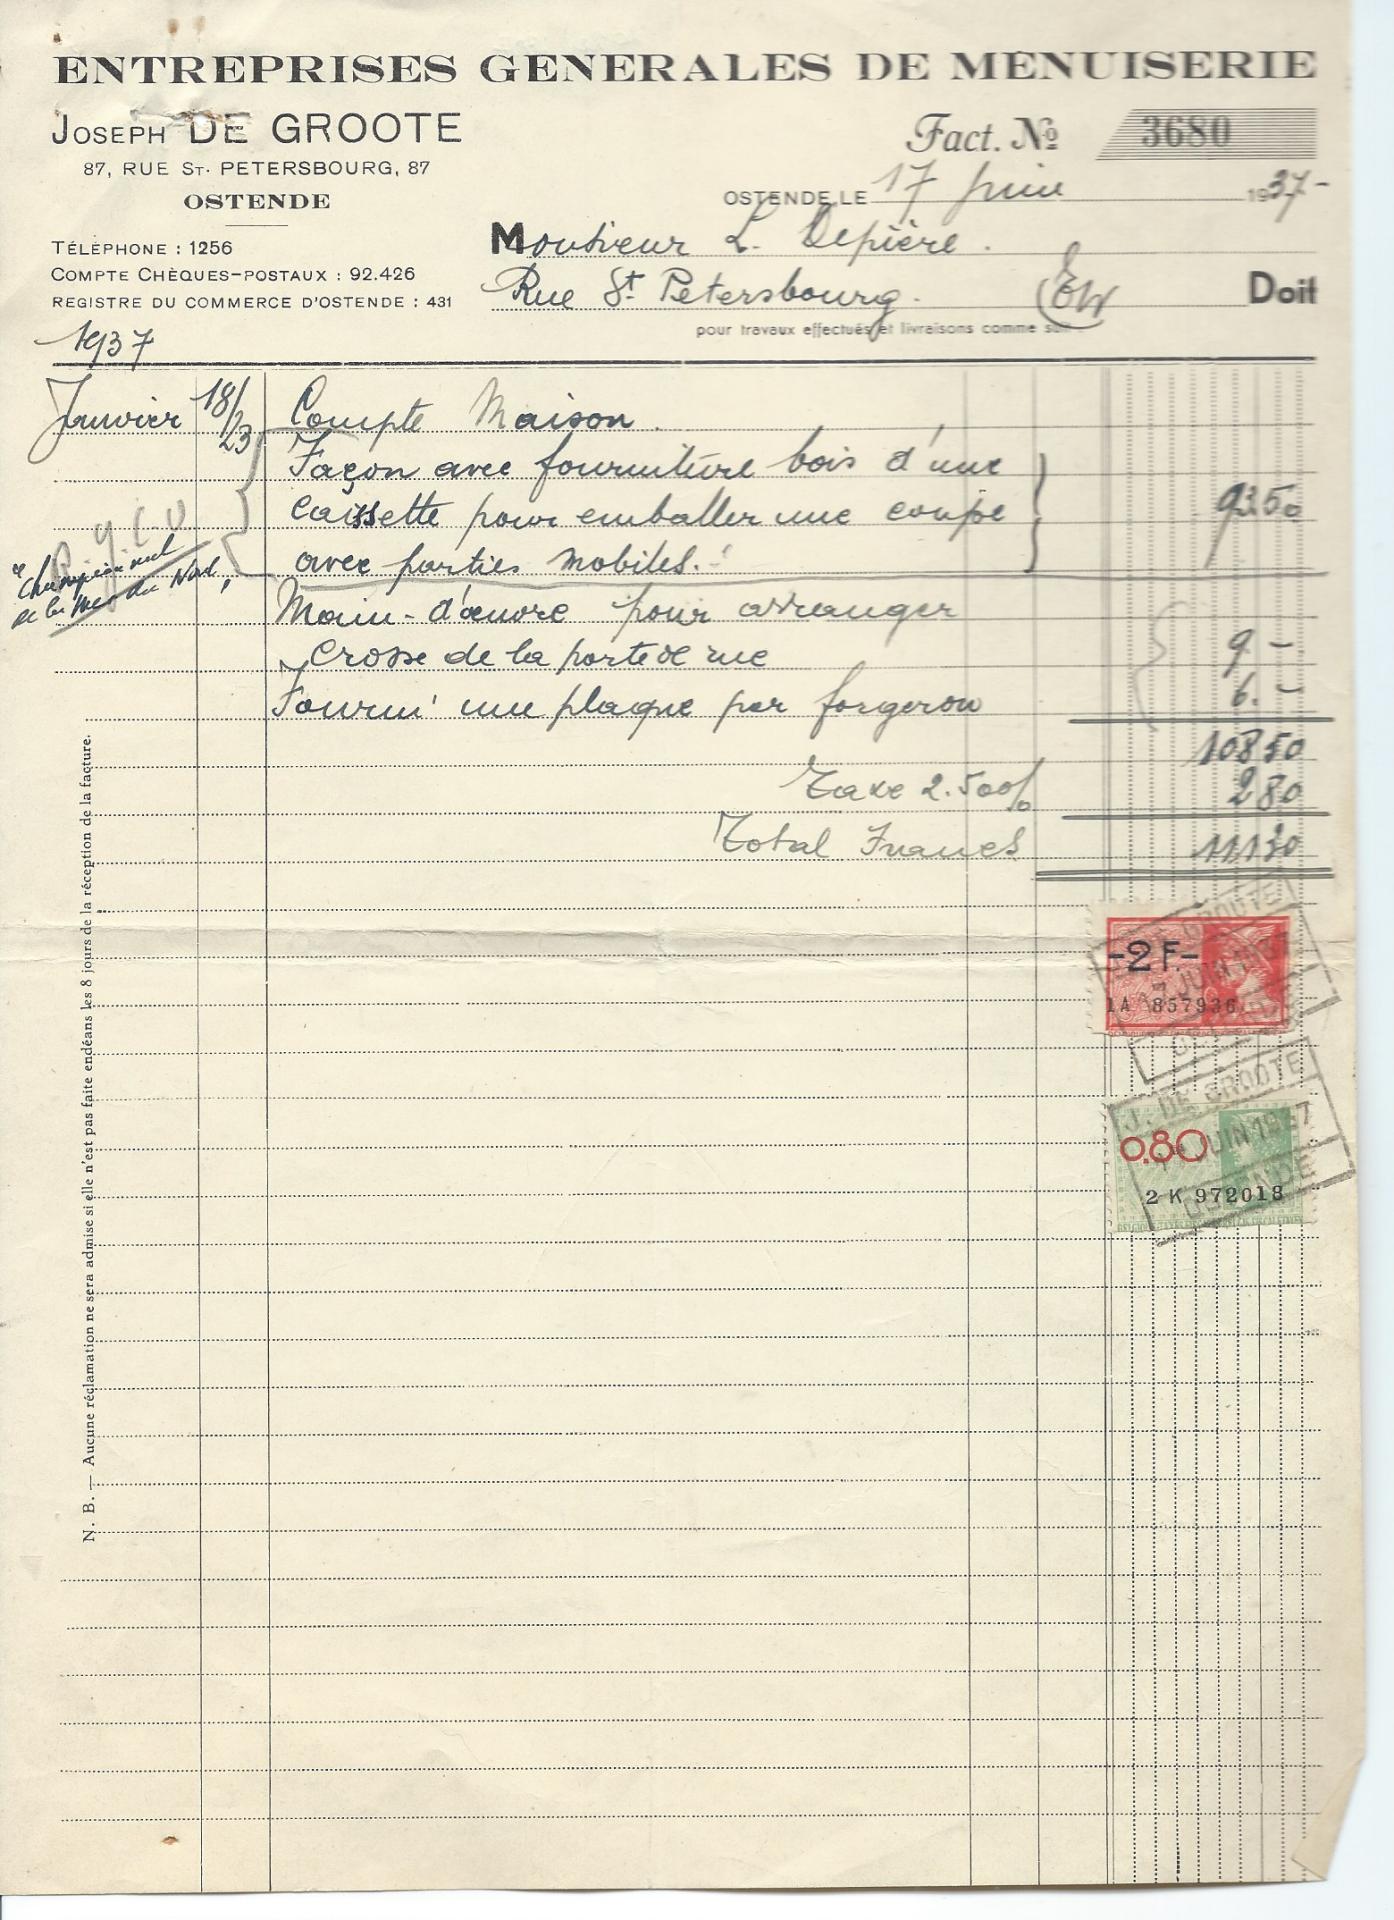 ENTREPRISES GENERALES DE MENUISERIE
JOSEPH DE GROOTE
87, RUE ST. PETERSBOURG, 87
OSTENDE
TÉLÉPHONE : 1256
COMPTE CHÈQUES-POSTAUX : 92.426
REGISTRE DU COMMERCE D'OSTENDE : 431
Fact. No 3680
OSTENDE, LE 17 juin 1937-
Monsieur L. Depière.
Rue St Petersbourg. EW Doit
pour travaux effectués et livraisons comme suit
1937
Janvier 18/23 Compte Maison.
Façon avec fourniture bois d'une
caissette pour emballer une coupe 93 50
avec parties mobiles.
R.Y.C.O
"Championnat
de la Mer du Nord"
Main-d'œuvre pour arranger
Crosse de la porte de rue 9 -
Fourni une plaque par forgeron 6. -
108 50
Taxe 2.50 0/0 2 80
Total Francs 111 30
-2 F.-
1A 857936
J. DE GROOTE
17 JUIN 1937
OSTENDE
0.80
2 K 972018
J. DE GROOTE
17 JUIN 1937
OSTENDE
N. B. — Aucune réclamation ne sera admise si elle n'est pas faite endéans les 8 jours de la réception de la facture.